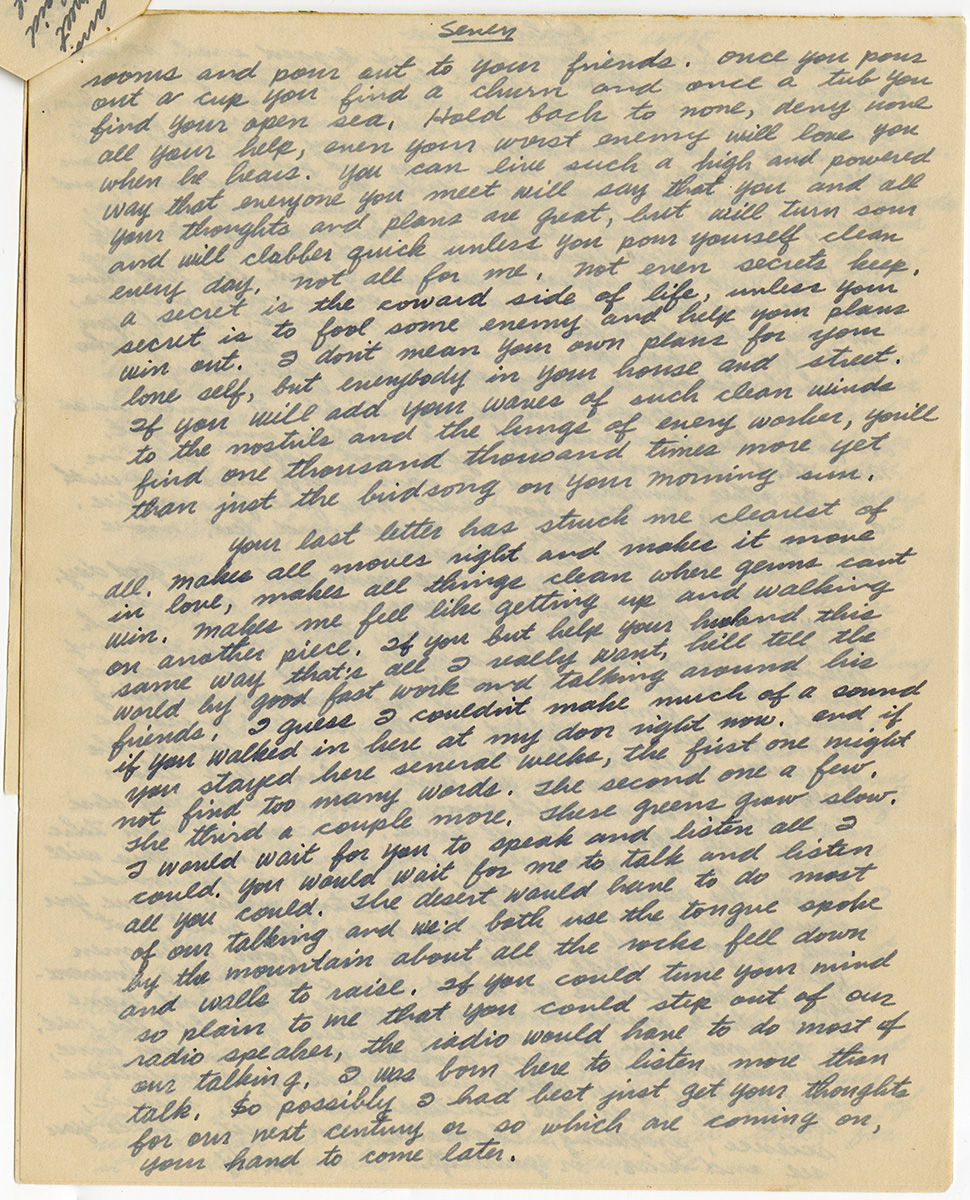 Seven
rooms and pour out to your friends. Once you pour
out a cup you find a churn and once a tub you
find your open sea. Hold back to none, deny none
all your help, even your worst enemy will love you
when he hears. You can live such a high and powered
way that everyone you meet will say that you and all
your thoughts and plans are great, but will turn sour
and will clabber quick unless you pour yourself clean
every day. Not all for me. Not even secrets keep.
A secret is the coward side of life, unless your
secret is to fool some enemy and help your plans
win out. I don't mean your own plans for your
lone self, but everybody in your house and street.
If you will add your waves of such clean winds
to the nostrils and the lungs of every worker, you'll
find one thousand thousand times more yet
than just the birdsong on your morning sun.
Your last letter has struck me clearest of
all. Makes all moves right and makes it move
in love, makes all things clean where germs cant
win. Makes me feel like getting up and walking
on another piece. If you but help your husband this
same way that's all I really want, he'll tell the
world by good fast work and talking around his
friends. I guess I couldn't make much of a sound
if you walked in here at my door right now. And if
you stayed here several weeks, the first one might
not find too many words. The second one a few.
The third a couple more. These greens grow slow.
I would wait for you to speak and listen all I
could. You would wait for me to talk and listen
all you could. The desert would have to do most
of our talking and we'd both use the tongue spoke
by the mountain about all the rocks fell down
and walls to raise. If you could tune your mind
so plain to me that you could step out of our
radio speaker, the radio would have to do most of
our talking. I was born here to listen more than
talk. So possibly I had best just get your thoughts
for our next century or so which are coming on,
your hand to come later.